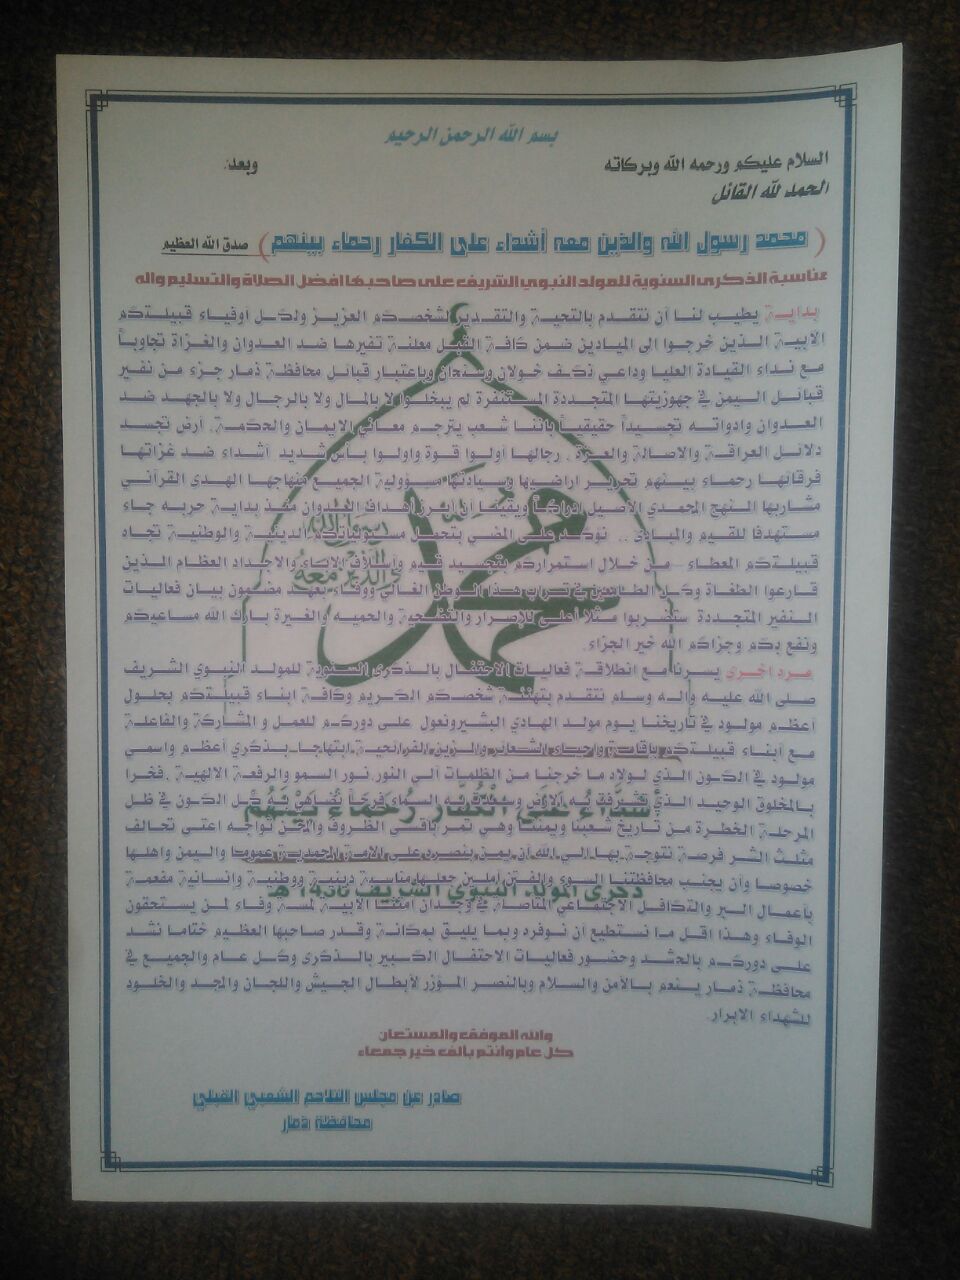 بسم الله الرحمن الرحيم
السلام عليكم ورحمه الله وبركاته وبعد:
الحمد لله القائل
(محمد رسول الله والذين معه أشداء على الكفار رحماء بينهم) صدق الله العظيم
مناسبة الذكرى السنوية للمولد النبوي الشريف على صاحبها افضل الصلاة والتسليم واله
بداية يطيب لنا أن نتقدم بالتحية والتقدير لشخصكم العزيز ولكل أوفياء قبيلتكم
الابية الذين خرجوا الى الميادين ضمن كافة القبل معلنة نفيرها ضد العدوان والغزاة تجاوباً
مع نداء القيادة العليا وداعي نكف خولان وسنحان وباعتبار قبائل محافظة ذمار جزء من نفير
قبائل اليمن في جهوزيتها المتجددة المستنفرة لم يبخلوا لا بالمال ولا بالرجال ولا بالجهد ضد
العدوان وادواته تجسيداً حقيقياً بأننا شعب يترجم معاني الايمان والحكمة، أرض تجسد
دلائل العراقة والاصالة والعزة، رجالها أولوا قوة واولوا بأس شديد أشداء ضد غزاتها
فرقائها رحماء بينهم تحرير اراضيها وسيادتها مسؤولية الجميع منهاجها الهدى القرآني
مشاربها النهج المحمدي الأصيل ادراكاً ويقيناً أن أبرز أهداف العدوان منذ بداية حربه جاء
مستهدفا للقيم والمبادئ .. نؤكد على المضي بتحمل مسؤلياتكم الدينية والوطنية تجاه
قبيلتكم المعطاء - من خلال استمراركم بتجسيد قيم واسلاف الاباء والاجداد العظام الذين
قارعوا الطغاة وكل الطامعين في تراب هذا الوطن الغالي ووفاء بعهد مضمون بيان فعاليات
النفير المتجددة ستضربوا مثلا أعلى للإصرار والتضحية والحميه والغيرة بارك الله مساعيكم
ونفع بكم وجزاكم الله خير الجزاء.
مرة اخرى يسرنا مع انطلاقة فعاليات الاحتفال بالذكرى السنوية للمولد النبوي الشريف
صلى الله عليه وآله وسلم نتقدم بتهنئة شخصكم الكريم وكافة ابناء قبيلتكم بحلول
أعظم مولود في تاريخنا يوم مولد الهادي البشير ونعول على دوركم للعمل و المشاركة والفاعلة
مع أبناء قبيلتكم بإقامة واحياء الشعائر والزين الفرائحية ابتهاجا بذكرى أعظم واسمى
مولود في الكون الذي لولاه ما خرجنا من الظلمات الى النور نور السمو والرفعة الالهية ،فخرا
بالمخلوق الوحيد الذي تشرفت به الارض وسعدت به السماء فرحاً يضاهي به كل الكون في ظل
المرحلة الخطرة من تاريخ شعبنا ويمننا وهي تمر بأقسى الظروف والمحن نواجه اعتى تحالف
مثلث الشر فرصة نتوجة بها الى الله أن يمن بنصره على الامة المحمدية عموما واليمن واهلها
خصوصا وأن يجنب محافظتنا السوء والفتن آملين جعلها مناسبة دينية ووطنية وإنسانية مفعمة
بأعمال البر والتكافل الاجتماعي المتأصلة في وجدان أمتنا الأبية لمسة وفاء لمن يستحقون
الوفاء وهذا اقل ما نستطيع أن نوفره وبما يليق بمكانة وقدر صاحبها العظيم ختاما نشد
على دوركم بالحشد وحضور فعاليات الاحتفال الكبير بالذكرى وكل عام والجميع في
محافظة ذمار ينعم بالأمن والسلام وبالنصر المؤزر لأبطال الجيش واللجان والمجد والخلود
للشهداء الابرار.
والله الموفق والمستعان
كل عام وانتم بألف خير جمعاء
صادر عن مجلس التلاحم الشعبي القبلي
محافظة ذمار
محمد
رسول الله
والذين معه
أشداء على الكفار رحماء بينهم
ذكرى المولد النبوي الشريف